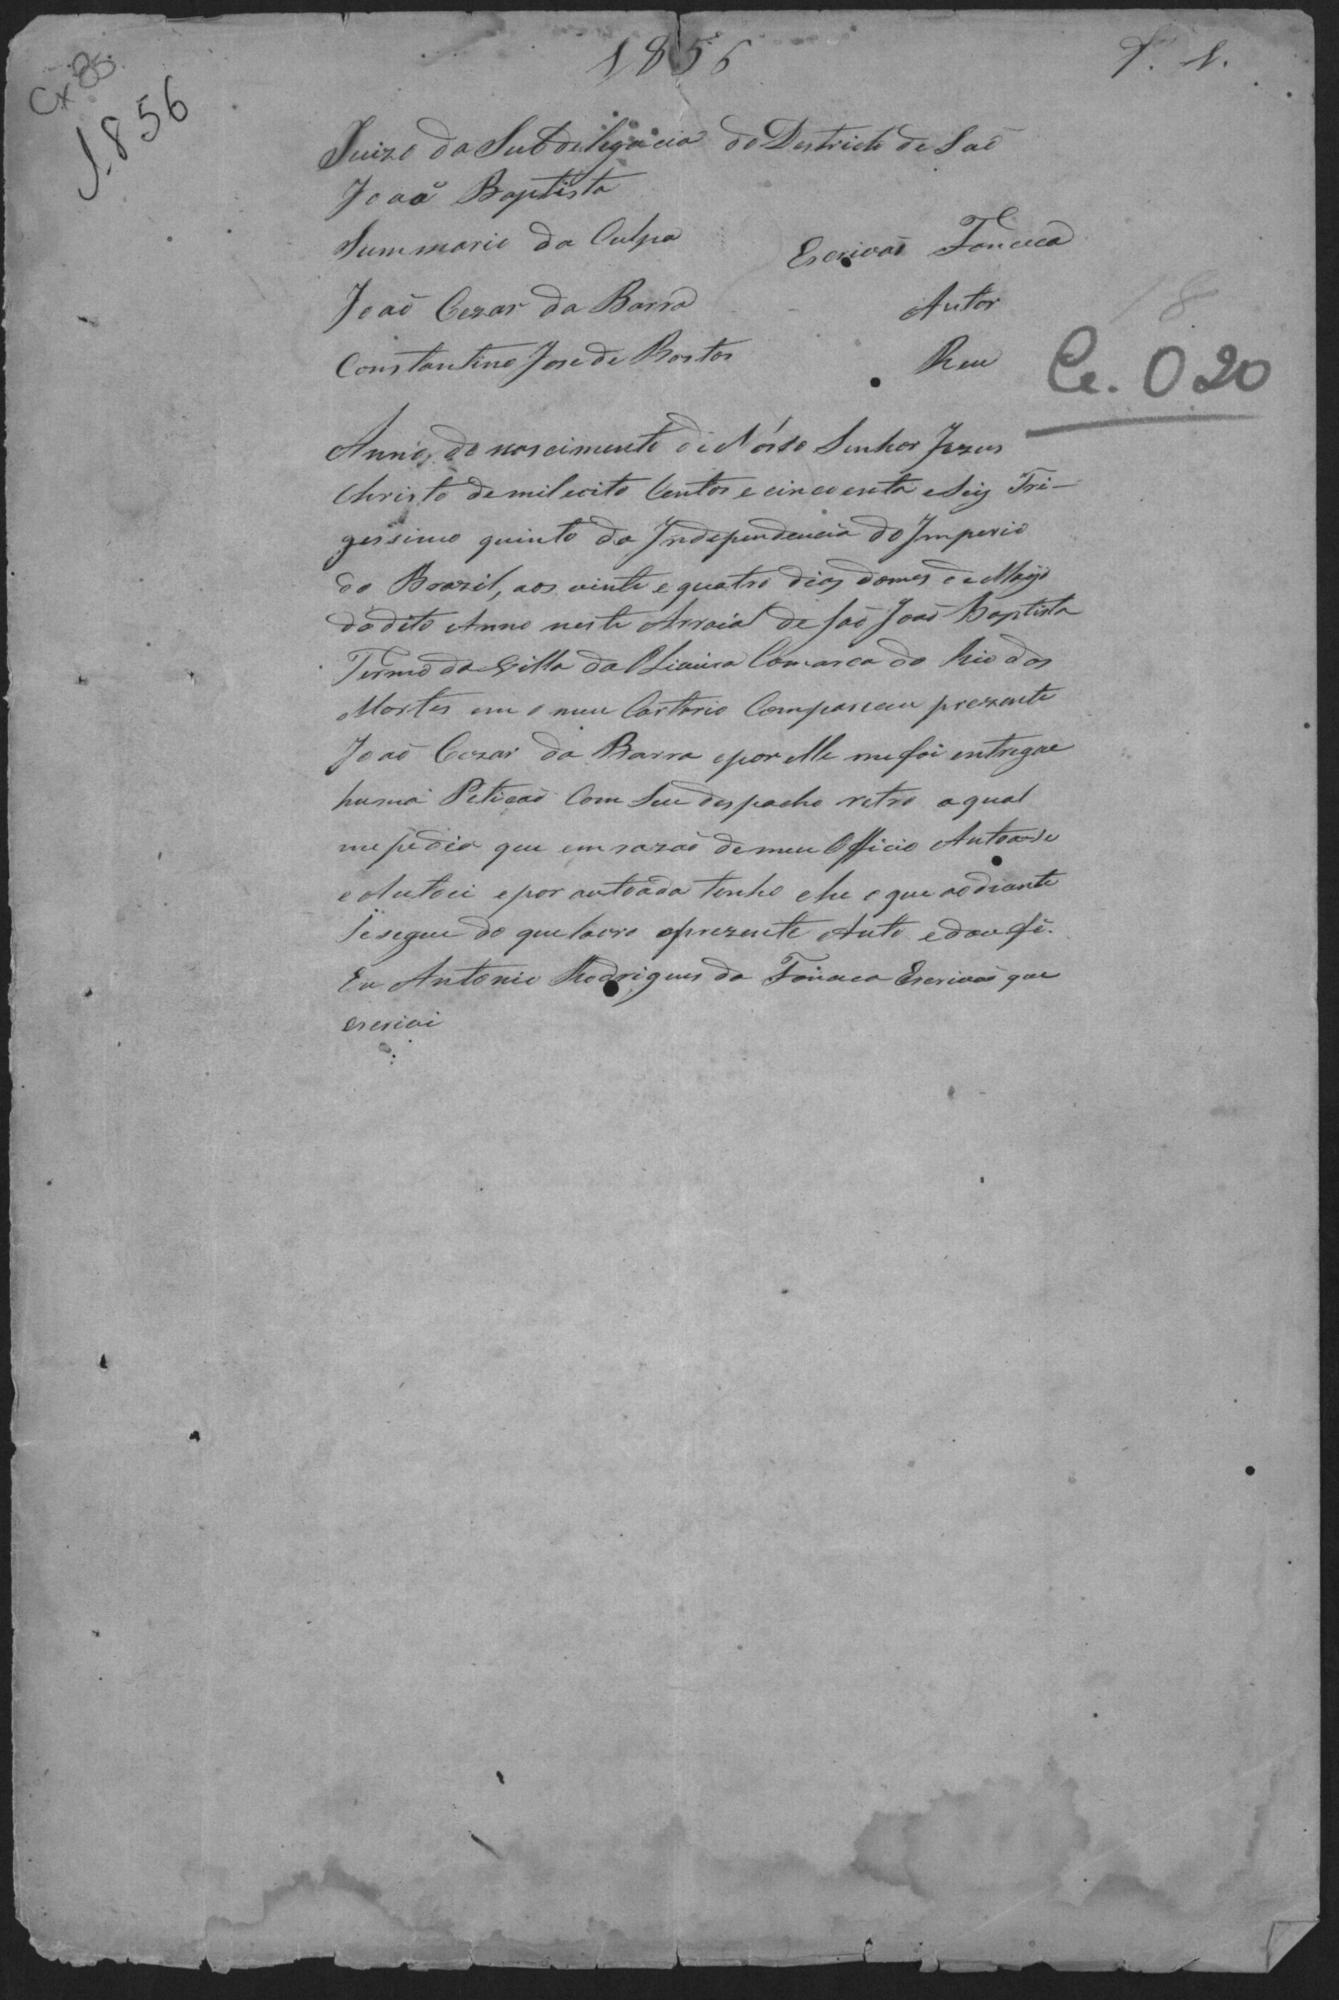 1856
F. 1.
Cx 85
1856
Juizo da Subdelegacia do Destricto de Saõ
Joaõ Baptista
Summario da Culpa
Escrivaõ Fonceca
Joaõ Cezar da Barra
Autor
Constantino Jose de Bastos
Reu
18
Ce. 020
Anno do nascimento de Nosso Senhor Jezus
Christo de mil e oito Centos e cincoenta e Seis Tri-
gessimo quinto da Independencia do Imperio
do Brazil, aos vinte e quatro dias do mes de Mayo
do dito Anno neste Arraial de Saõ Joaõ Baptista
Termo da Villa da Oliveira Comarca do Rio das
Mortes em o meu Cartorio Compareceu prezente
Joaõ Cezar da Barra e por elle me foi entregue
huma Petiçaõ Com Seu despacho retro a qual
me pedio que em razaõ de meu Officio Autoase
e Autoei e por autoada tenho e he o que ao diante
Se segue do que lavro o prezente Auto e dou fé.
Eu Antonio Rodrigues da Fonceca Escrivaõ que
escrevi